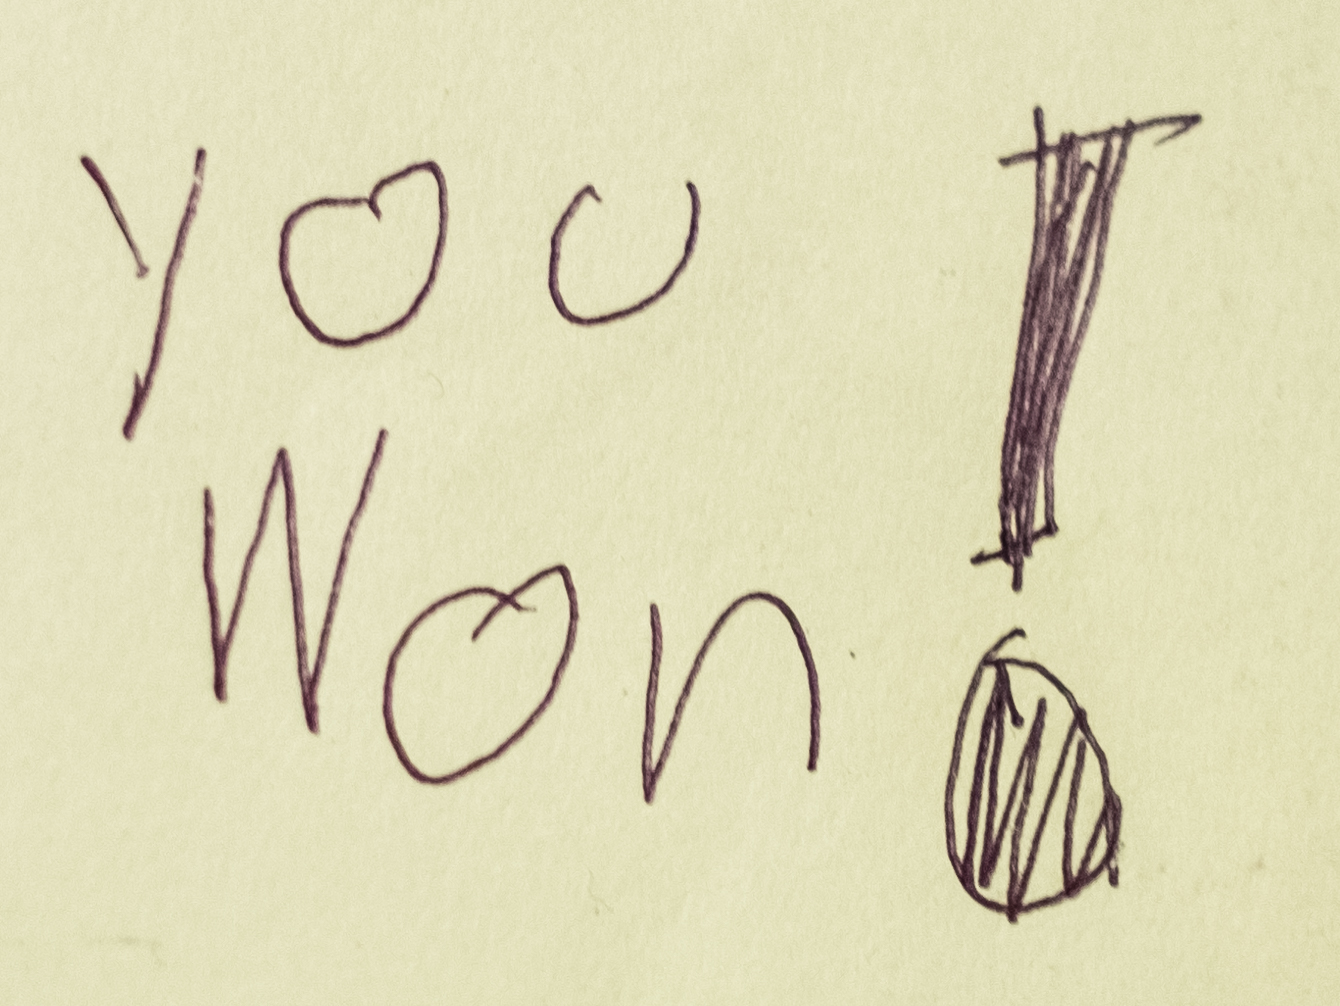 you
Won!